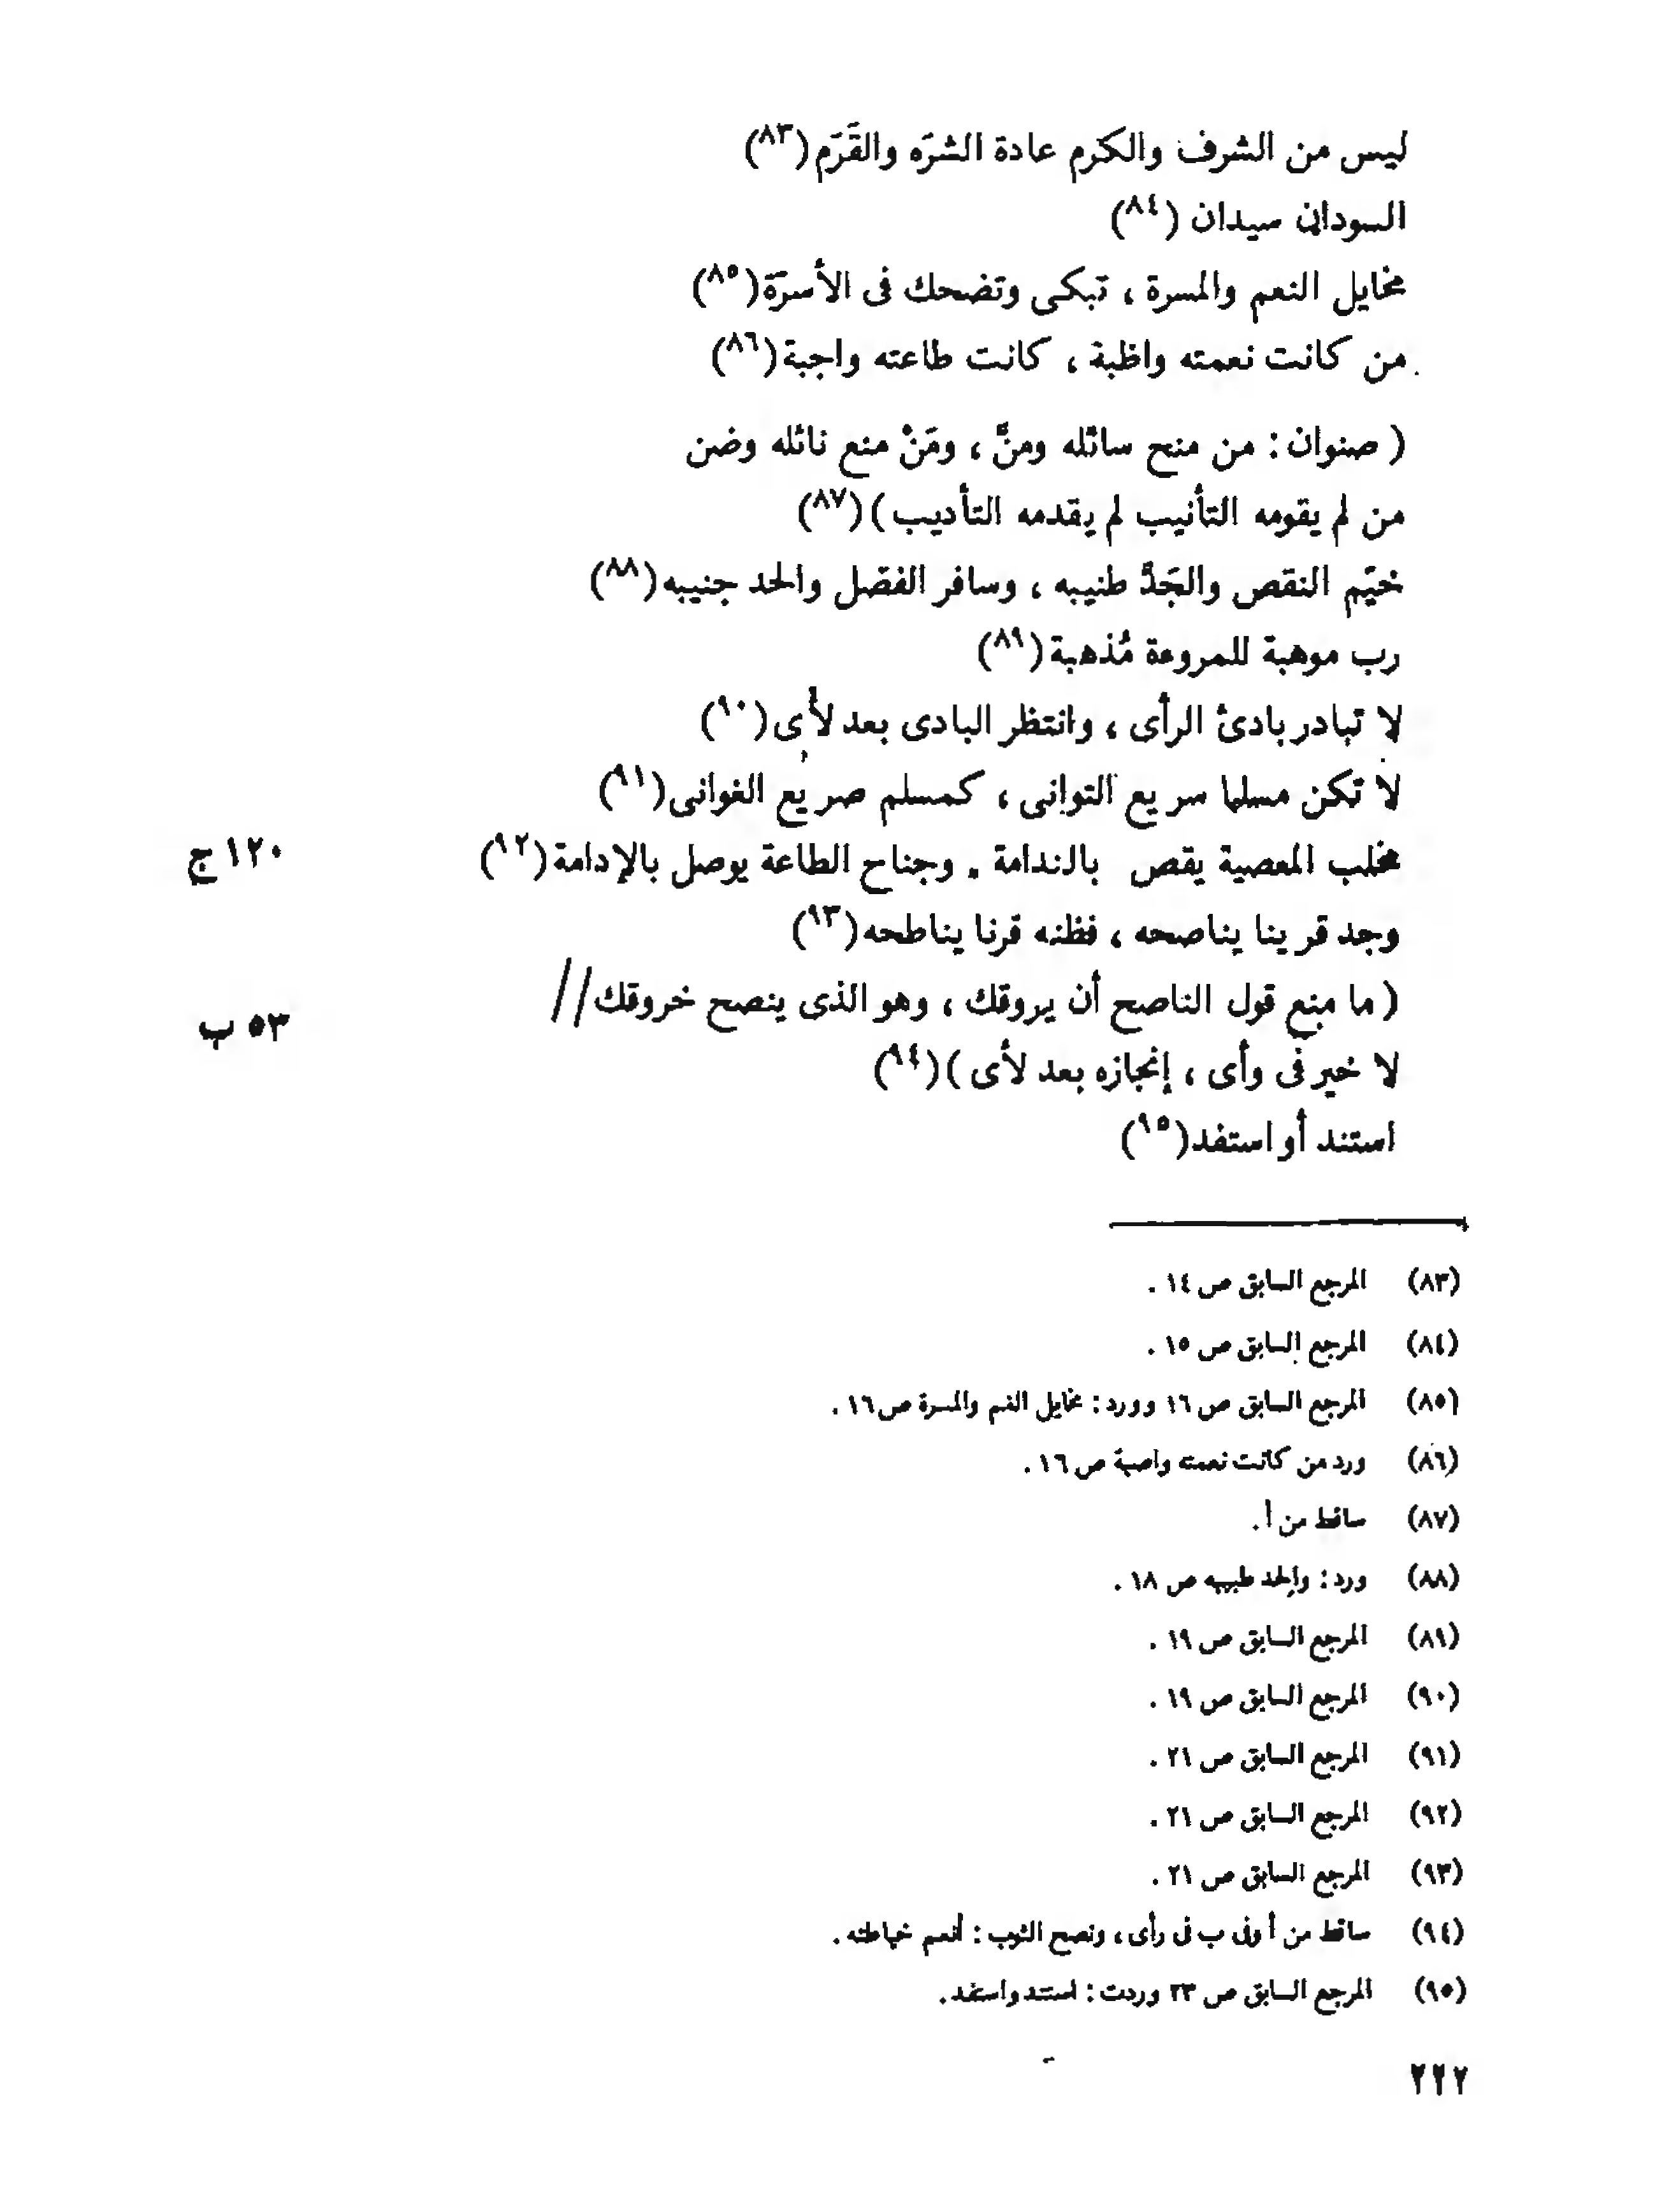 ليس من الشرف والكرم عادة الشرَه والقَرَم(٨٣)
السودان سيدان (٨٤)
مخايل النعم والمسرة ، تبكى وتضحك فى الأسرّة(٨٥)
من كانت نعمته واظبة ، كانت طاعته واجبة(٨٦)
( صنوان : من منح سائله ومنَّ ، ومَنْ منع نائله وضن
من لم يقومه التأنيب لم يقدمه التأديب )(٨٧)
خيّم النقص والجَدَّ طنيبه ، وسافر الفضل والحد جنيبه(٨٨)
رب موهبة للمروءة مُذهبة(٨٩)
لا تبادر بادئ الرأى ، وانتظر البادى بعد لأى(٩٠)
لا تكن مسلما سريع التوانى ، كمسلم صريع الغوانى(٩١)
مخلب المعصية يقص بالندامة . وجناح الطاعة يوصل بالإدامة(٩٢)
١٢٠ ج
وجد قرينا يناصحه ، فظنه قرنا يناطحه(٩٣)
( ما منع قول الناصح أن يروقك ، وهو الذى ينصح خروقك//
٥٣ ب
لا خير فى وأى ، إنجازه بعد لأى )(٩٤)
استند أو استفد(٩٥)
(٨٣) المرجع السابق ص ١٤ .
(٨٤) المرجع السابق ص ١٥ .
(٨٥) المرجع السابق ص ١٦ وورد : مخايل الغم والمسرة ص١٦ .
(٨٦) ورد من كانت نعمته واصبة ص ١٦ .
(٨٧) ساقط من أ .
(٨٨) ورد : والحد طبيبه ص ١٨ .
(٨٩) المرجع السابق ص ١٩ .
(٩٠) المرجع السابق ص ١٩ .
(٩١) المرجع السابق ص ٢١ .
(٩٢) المرجع السابق ص ٢١ .
(٩٣) المرجع السابق ص ٢١ .
(٩٤) ساقط من أ وفى ب فى رأى ، ونصح الثوب : أنعم خياطته .
(٩٥) المرجع السابق ص ٢٣ وردت : استند واستفد .
٢٢٢